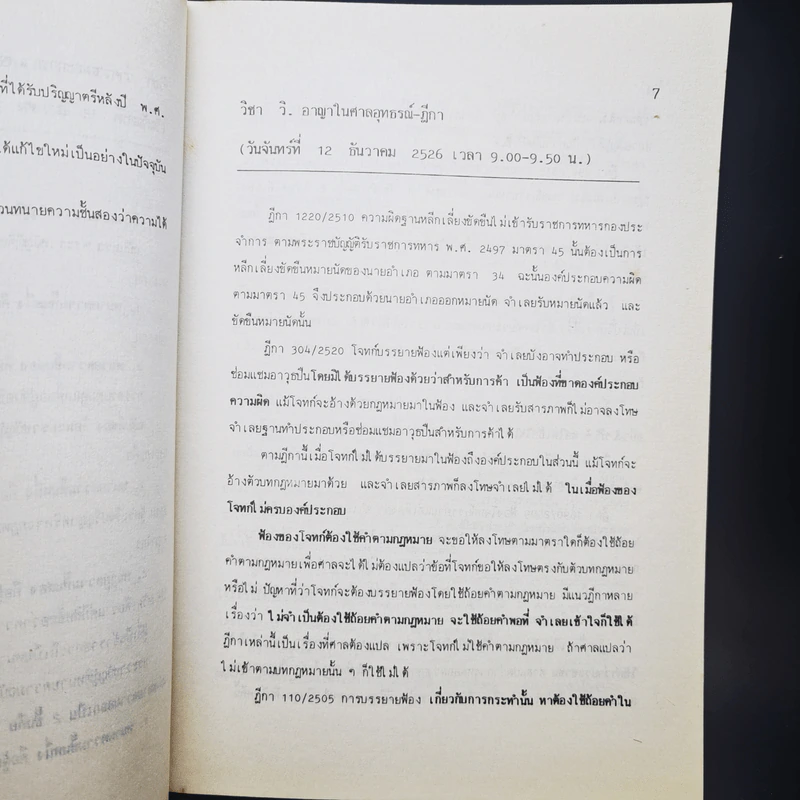 ที่ได้รับปริญญาตรีหลังปี พ.ศ.
ได้แก้ไขใหม่เป็นอย่างในปัจจุบัน
วนทนายความชั้นสองว่าความได้
7
วิชา วิ. อาญาในศาลอุทธรณ์-ฎีกา
(วันจันทร์ที่ 12 ธันวาคม 2526 เวลา 9.00-9.50 น.)
ฎีกา 1220/2510 ความผิดฐานหลีกเลี่ยงขัดขืนไม่เข้ารับราชการทหารกองประ
จำการ ตามพระราชบัญญัติรับราชการทหาร พ.ศ. 2497 มาตรา 45 นั้นต้องเป็นการ
หลีกเลี่ยงขัดขืนหมายนัดของนายอำเภอ ตามมาตรา 34 ฉะนั้นองค์ประกอบความผิด
ตามมาตรา 45 จึงประกอบด้วยนายอำเภอออกหมายนัด จำเลยรับหมายนัดแล้ว และ
ขัดขืนหมายนัดนั้น
ฎีกา 304/2520 โจทก์บรรยายฟ้องแต่เพียงว่า จำเลยบังอาจทำประกอบ หรือ
ซ่อมแซมอาวุธปืนโดยมิได้บรรยายฟ้องด้วยว่าสำหรับการค้า เป็นฟ้องที่ขาดองค์ประกอบ
ความผิด แม้โจทก์จะอ้างตัวบทกฎหมายมาในฟ้อง และจำเลยรับสารภาพก็ไม่อาจลงโทษ
จำเลยฐานทำประกอบหรือซ่อมแซมอาวุธปืนสำหรับการค้าได้
ตามฎีกานี้เมื่อโจทก์ไม่ได้บรรยายมาในฟ้องถึงองค์ประกอบในส่วนนี้ แม้โจทก์จะ
อ้างตัวบทกฎหมายมาด้วย และจำเลยสารภาพก็ลงโทษจำเลยไม่ได้ ในเมื่อฟ้องของ
โจทก์ไม่ครบองค์ประกอบ
ฟ้องของโจทก์ต้องใช้คำตามกฎหมาย จะขอให้ลงโทษตามมาตราใดก็ต้องใช้ถ้อย
คำตามกฎหมายเพื่อศาลจะได้ไม่ต้องแปลว่าข้อที่โจทก์ขอให้ลงโทษตรงกับตัวบทกฎหมาย
หรือไม่ ปัญหาที่ว่าโจทก์จะต้องบรรยายฟ้องโดยใช้ถ้อยคำตามกฎหมาย มีแนวฎีกาหลาย
เรื่องว่า ไม่จำเป็นต้องใช้ถ้อยคำตามกฎหมาย จะใช้ถ้อยคำพอที่ จำเลยเข้าใจก็ใช้ได้
ฎีกาเหล่านี้เป็นเรื่องที่ศาลต้องแปล เพราะโจทก์ไม่ใช้คำตามกฎหมาย ถ้าศาลแปลว่า
ไม่เข้าตามบทกฎหมายนั้น ๆ ก็ใช้ไม่ได้
ฎีกา 110/2505 การบรรยายฟ้อง เกี่ยวกับการกระทำนั้น หาต้องใช้ถ้อยคำใน